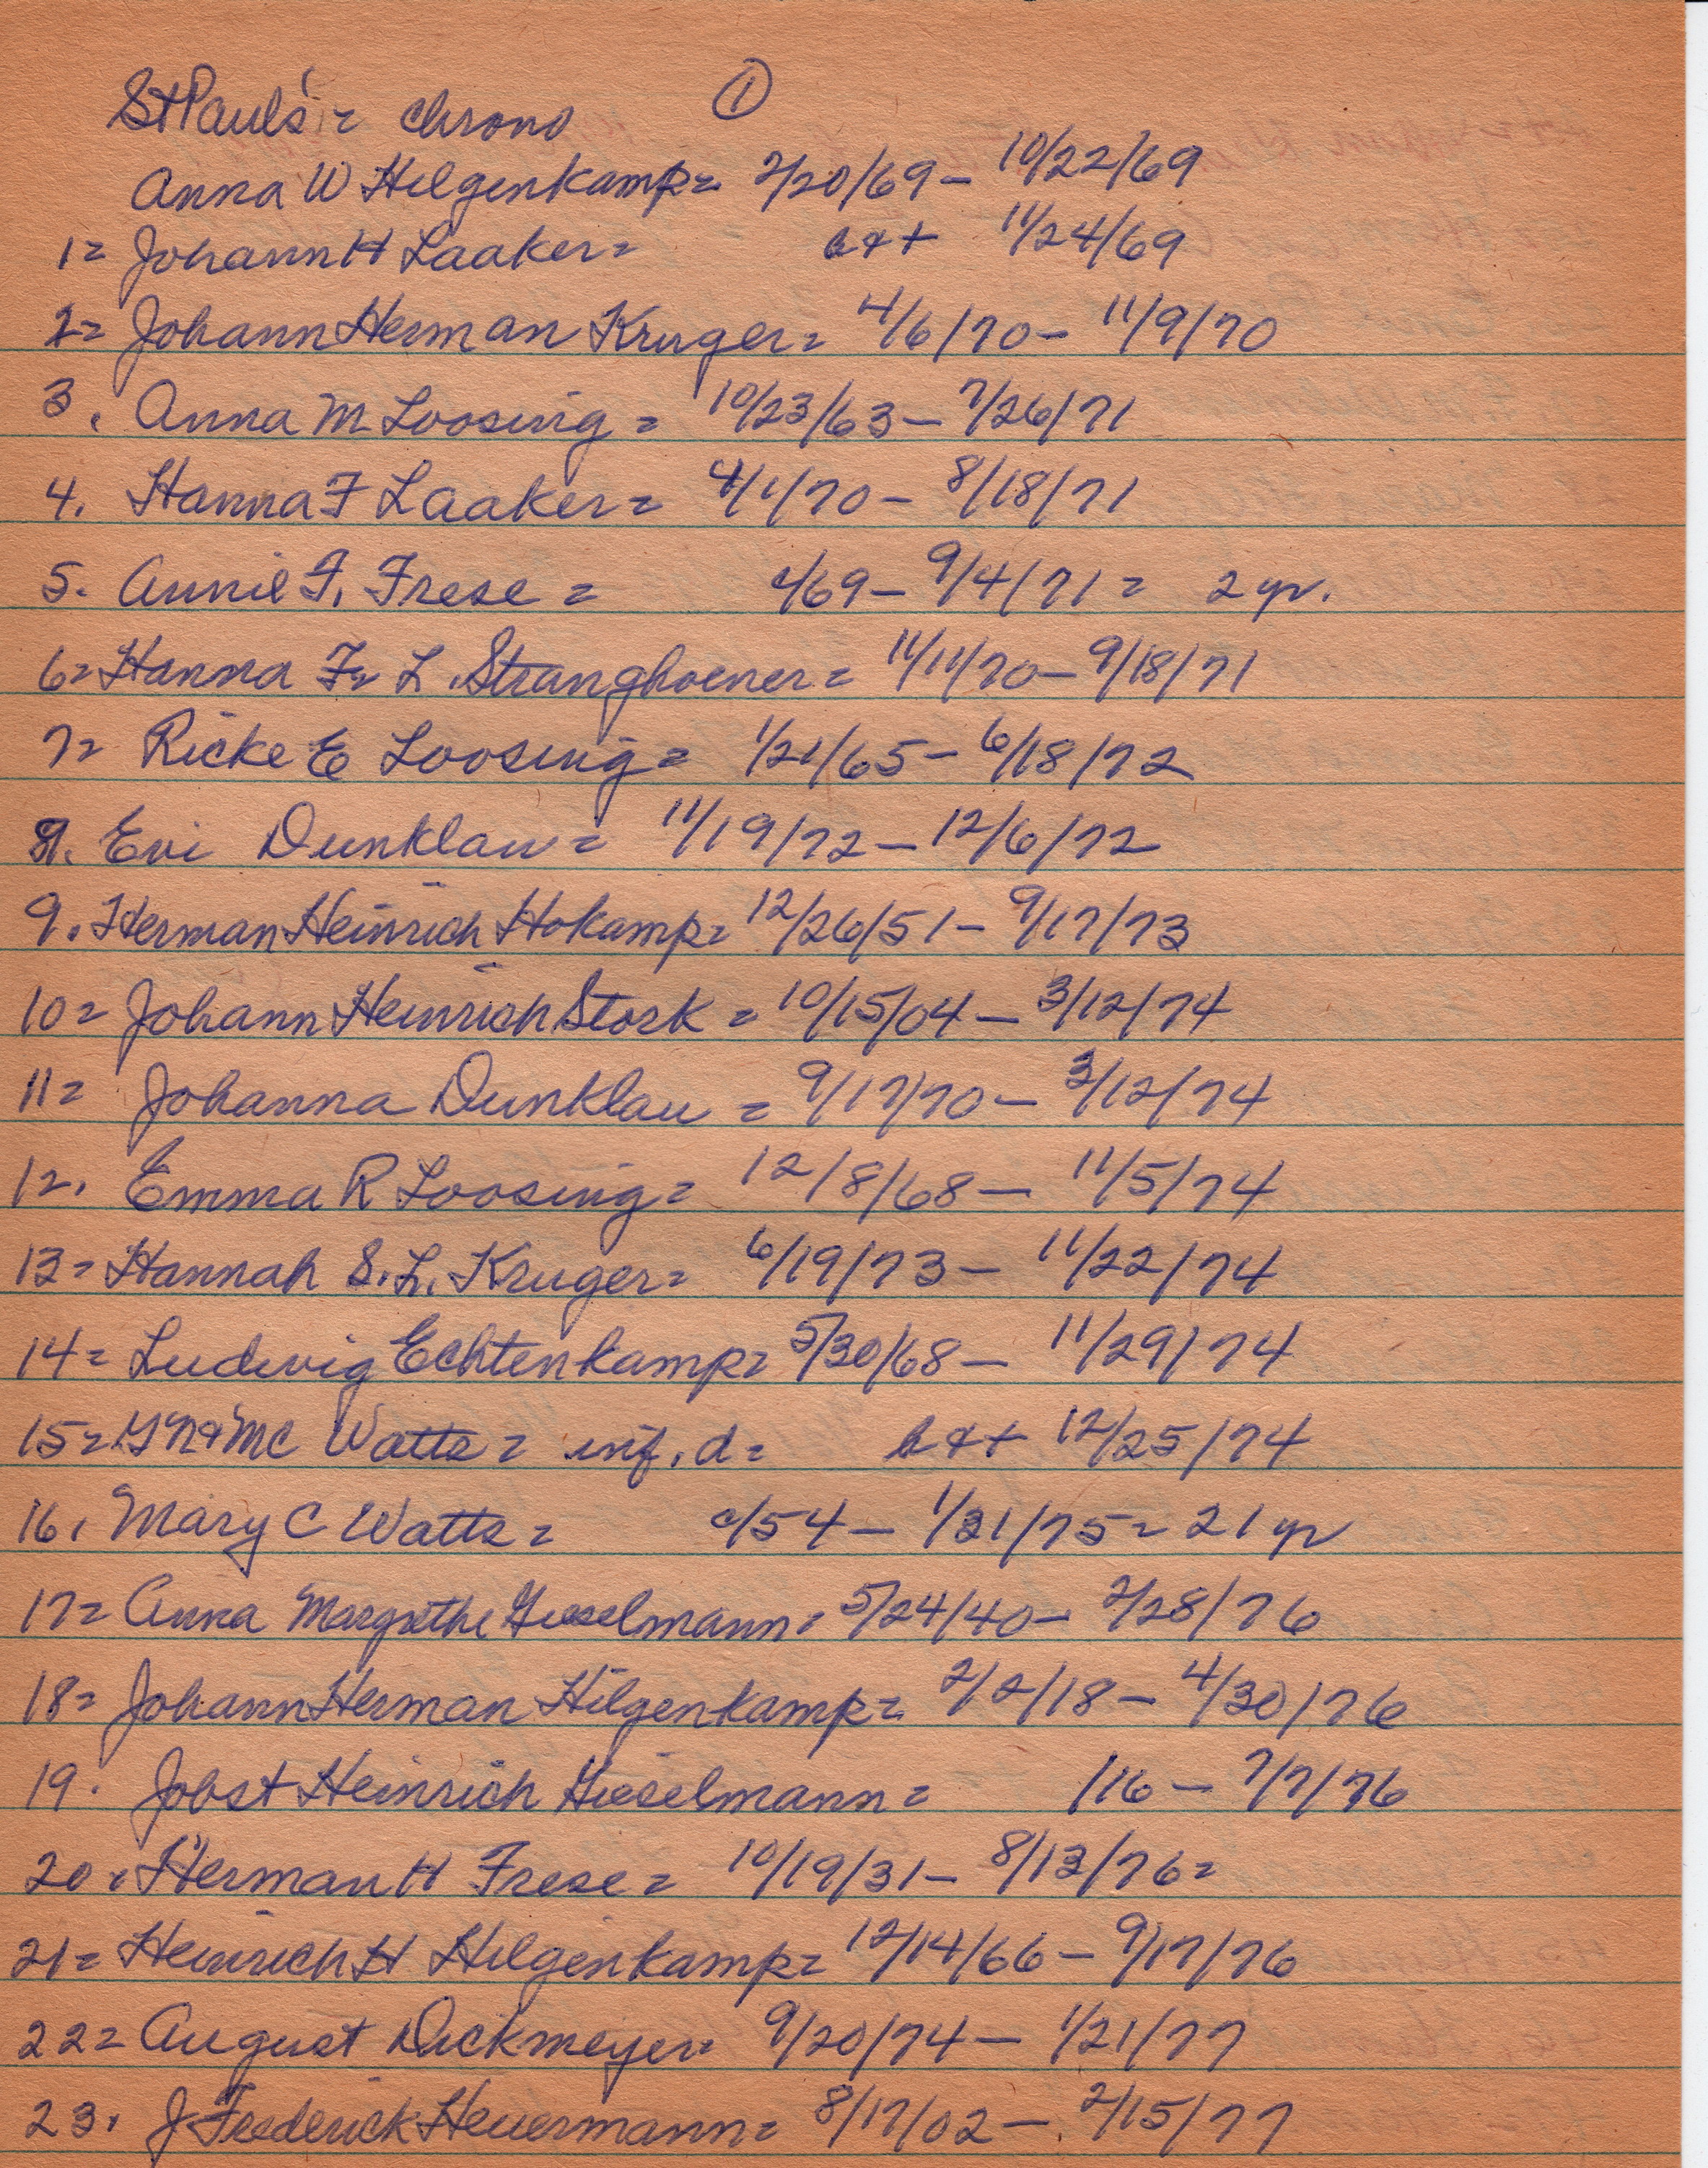 St Paul's = chrono ①
Anna W Hilgenkamp = 2/20/69 - 10/22/69
1= Johann H Laaker = b&+ 11/24/69
2= Johann Herman Kruger = 4/6/70 - 11/9/70
3. Anna M Loosing = 10/23/63 - 7/26/71
4. Hanna F Laaker = 4/1/70 - 8/18/71
5. Annie F. Frese = c/69 - 9/4/71 = 2 yr.
6= Hanna Fr L Stranghoener = 11/11/70 - 9/18/71
7= Ricke E Loosing = 1/21/65 - 6/18/72
8. Evi Dunklau = 11/19/72 - 12/6/72
9. Herman Heinrich Hokamp = 12/26/51 - 9/17/73
10= Johann Heinrich Stork = 10/15/04 - 3/12/74
11= Johanna Dunklau = 9/17/70 - 3/12/74
12. Emma R Loosing = 12/8/68 - 11/5/74
13= Hannah S. L. Kruger = 6/19/73 - 11/22/74
14= Ludwig Echtenkamp = 5/30/68 - 11/29/74
15= & MC Watts = inf. d = b&+ 12/25/74
16. Mary C Watts = c/54 - 1/31/75 = 21 yr
17= Anna Margrethe Gieselmann = 5/24/40 - 2/28/76
18= Johann Herman Hilgenkamp = 2/2/18 - 4/30/76
19. Jobst Heinrich Gieselmann = /16 - 7/7/76
20. Herman H Frese = 10/19/31 - 8/13/76 =
21= Heinrich H Hilgenkamp = 12/14/66 - 9/17/76
22= August Dickmeyer = 9/20/74 - 1/21/77
23. J. Frederick Heuermann = 8/17/02 - 2/15/77